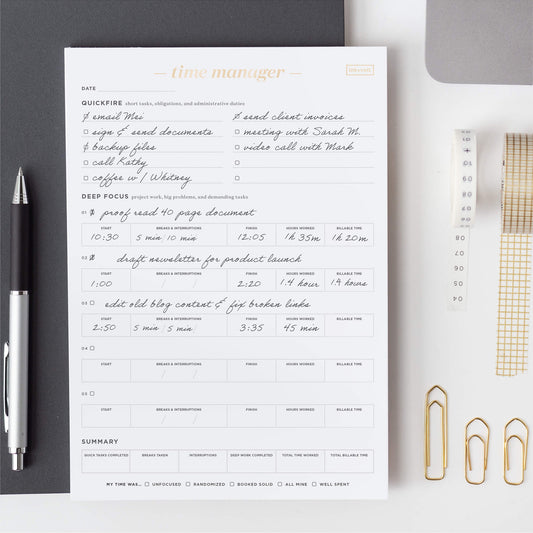 time manager
DATE
QUICKFIRE short tasks, obligations, and administrative duties
email Mei
send client invoices
sign & send documents
meeting with Sarah M.
backup files
video call with Mark
call Kathy
coffee w / Whitney
DEEP FOCUS project work, big problems, and demanding tasks
01 proof read 40 page document
START BREAKS & INTERRUPTIONS FINISH HOURS WORKED BILLABLE TIME
10:30 5 min 10 min 12:05 1h 35m 1h 20m
02 draft newsletter for product launch
START BREAKS & INTERRUPTIONS FINISH HOURS WORKED BILLABLE TIME
1:00 / / 2:20 1.4 hour 1.4 hours
03 edit old blog content & fix broken links
START BREAKS & INTERRUPTIONS FINISH HOURS WORKED BILLABLE TIME
2:50 5 min / 5 min / 3:35 45 min
04
START BREAKS & INTERRUPTIONS FINISH HOURS WORKED BILLABLE TIME
/ /
05
START BREAKS & INTERRUPTIONS FINISH HOURS WORKED BILLABLE TIME
/ /
SUMMARY
QUICK TASKS COMPLETED BREAKS TAKEN INTERRUPTIONS DEEP WORK COMPLETED TOTAL TIME WORKED TOTAL BILLABLE TIME
MY TIME WAS... UNFOCUSED RANDOMIZED BOOKED SOLID ALL MINE WELL SPENT